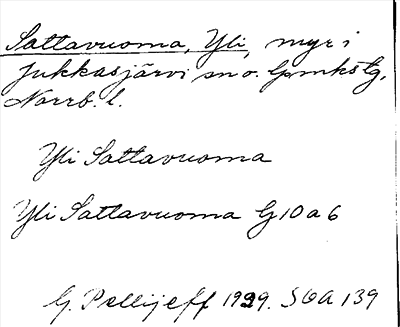 Sattavuoma, Yli, myr i
Jukkasjärvi sn o. lpmkstg,
Norrb. l.
Yli Sattavuoma
Yli Sattavuoma G10a6
G. Pellijeff 1929. SOA 139